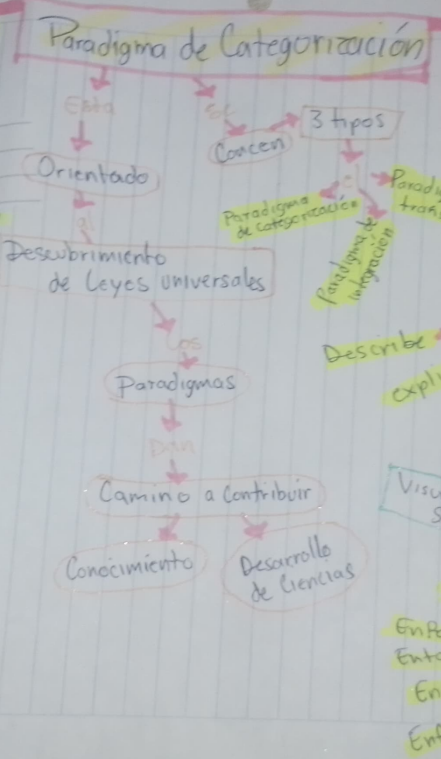 Paradigma de Categorización
Está
Se
3 tipos
Concen
Orientado
el
Paradigma
de categorización
Parad
tran
Paradigma de
integración
al
Descubrimiento
de Leyes universales
Los
Describe
Paradigmas
expli
Dan
Camino a Contribuir
Visu
S
Conocimiento
Desarrollo
de Ciencias
Ento
En